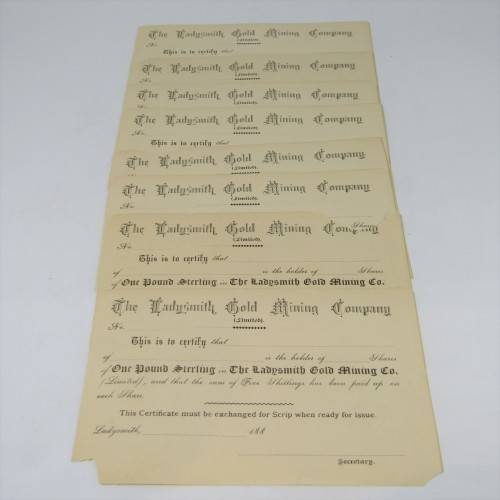 The Ladysmith Gold Mining Company
(Limited).
No.
This is to certify that
The Ladysmith Gold Mining Company
(Limited).
No.
The Ladysmith Gold Mining Company
(Limited).
No.
The Ladysmith Gold Mining Company
(Limited).
No.
This is to certify that
The Ladysmith Gold Mining Company
(Limited).
No.
The Ladysmith Gold Mining Company
(Limited).
No.
Shares
The Ladysmith Gold Mining Company
(Limited).
No.
This is to certify that
of is the holder of Shares
of One Pound Sterling in The Ladysmith Gold Mining Co.
The Ladysmith Gold Mining Company
(Limited).
No.
This is to certify that
of is the holder of Shares
of One Pound Sterling in The Ladysmith Gold Mining Co.
(Limited), and that the sum of Five Shillings has been paid up on
each Share.
This Certificate must be exchanged for Scrip when ready for issue.
Ladysmith, 188
Secretary.